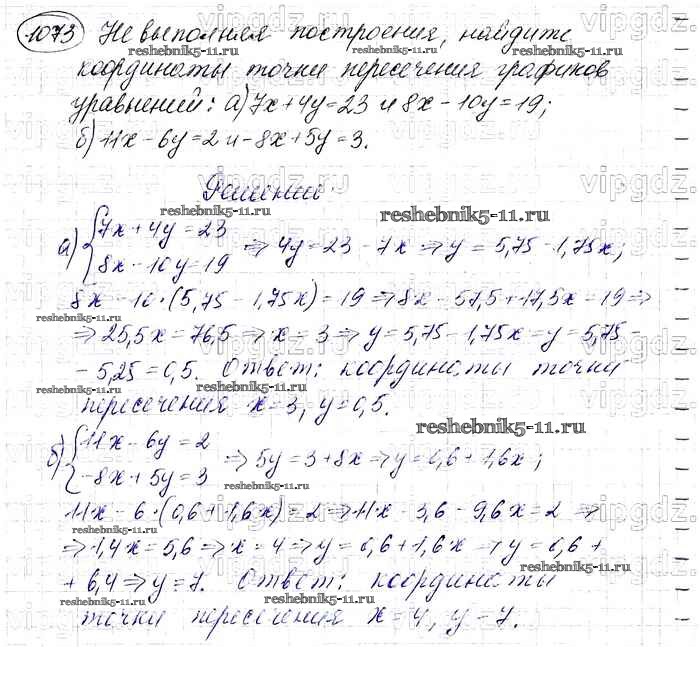 1073 Не выполняя построения, найдите
координаты точки пересечения графиков
уравнений: а) 7x+4y=23 и 8x-10y=19;
б) 11x-6y=2 и -8x+5y=3.
Решение:
а) {7x+4y=23
8x-10y=19 ⇒ 4y=23-7x ⇒ y=5,75-1,75x;
8x-10·(5,75-1,75x)=19 ⇒ 8x-57,5+17,5x=19 ⇒
⇒ 25,5x=76,5 ⇒ x=3 ⇒ y=5,75-1,75x=y=5,75-
-5,25=0,5. Ответ: координаты точки
пересечения x=3, y=0,5.
б) {11x-6y=2
-8x+5y=3 ⇒ 5y=3+8x ⇒ y=0,6+1,6x;
11x-6·(0,6+1,6x)=2 ⇒ 11x-3,6-9,6x=2 ⇒
⇒ 1,4x=5,6 ⇒ x=4 ⇒ y=0,6+1,6·x ⇒ y=0,6+
+6,4 ⇒ y=7. Ответ: координаты
точки пересечения x=4, y=7.
reshebnik5-11.ru
vipgdz.ru